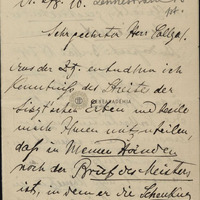 Sehr geehrter Herr College!
Aus der Ztg. entnehm ich
Kenntniss des Streites der
Liszt'schen Erben und beeile
mich Ihnen mitzuteilen,
daß in Meinen Händen
noch der Brief des Meisters
ist, in dem er die Schenkung